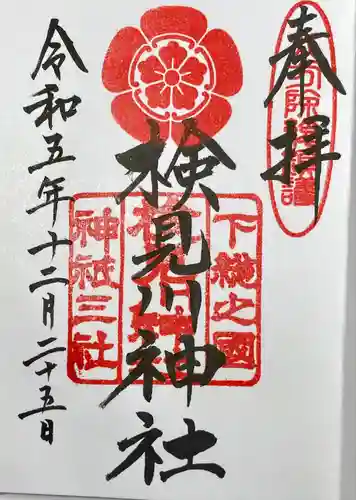 奉拝
検見川神社
下総之國
神社三社
令和五年十二月二十五日